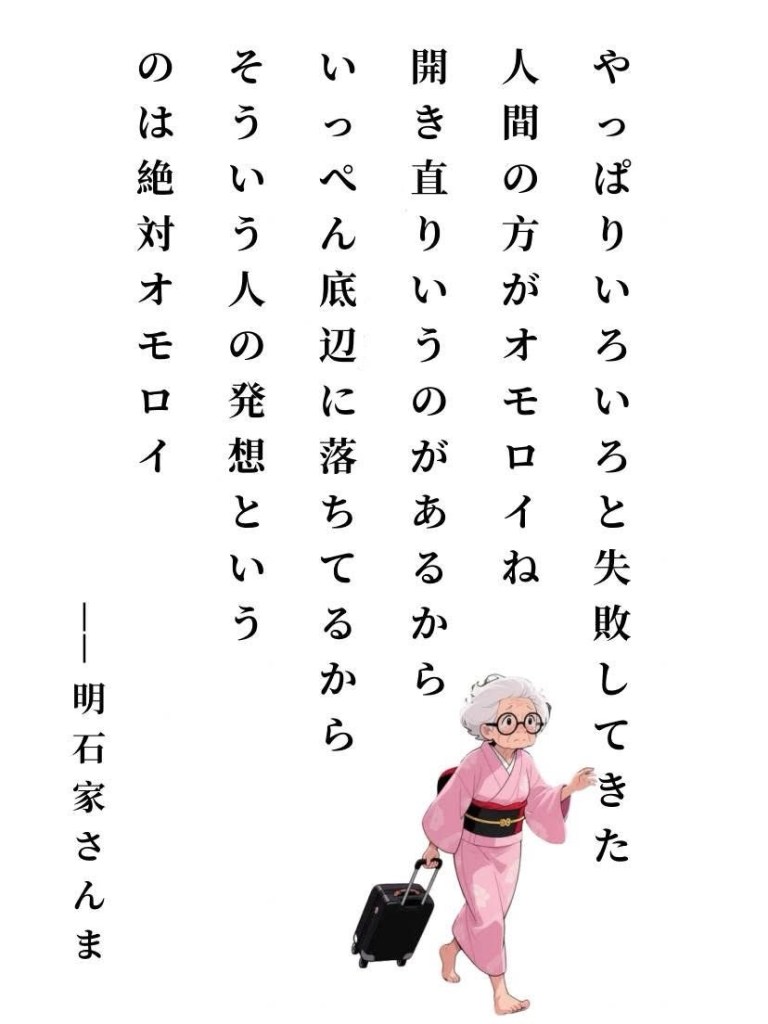 やっぱりいろいろと失敗してきた
人間の方がオモロイね
開き直りいうのがあるから
いっぺん底辺に落ちてるから
そういう人の発想という
のは絶対オモロイ
——明石家さんま